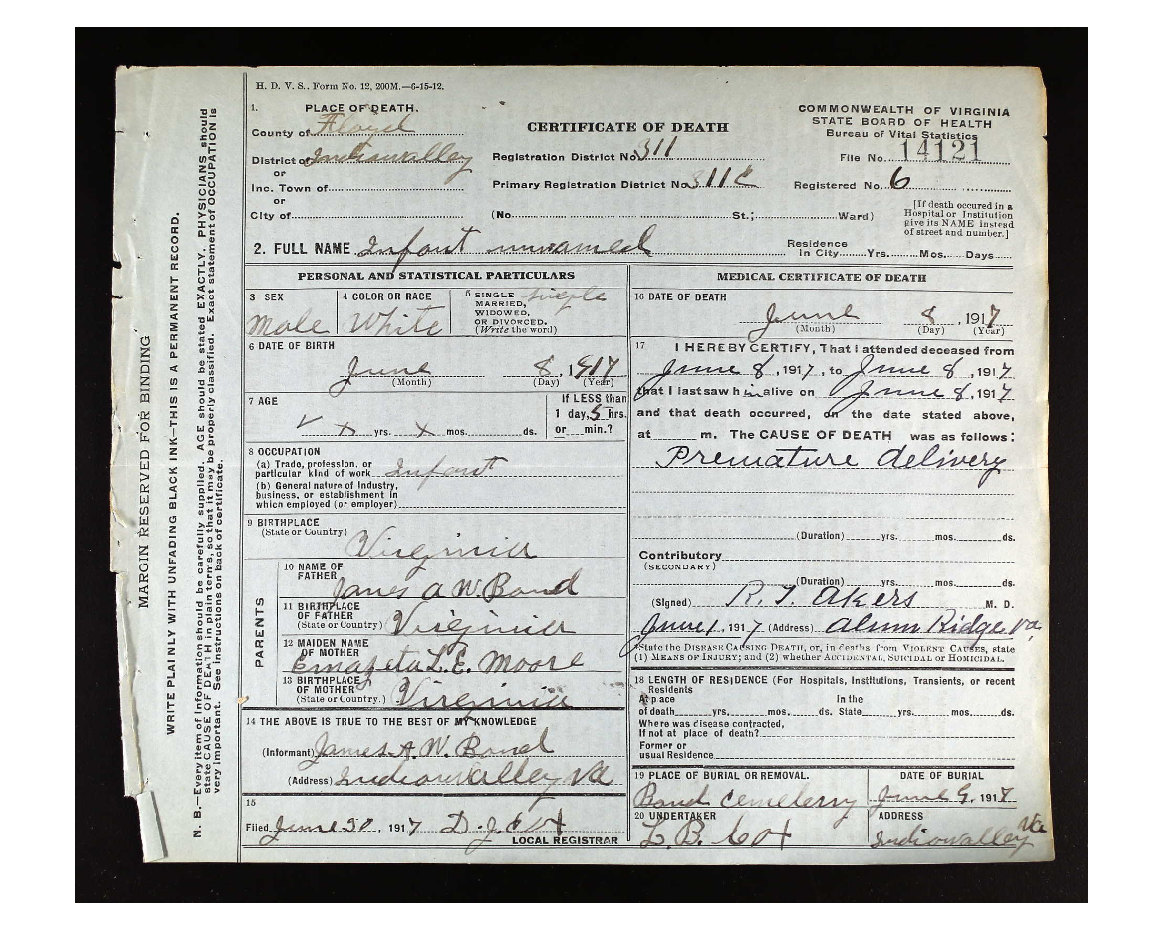 H. D. V. S., Form No. 12, 200M.—6-15-12.
1. PLACE OF DEATH.
County of Floyd
District of Indianvalley
or
Inc. Town of
or
City of
CERTIFICATE OF DEATH
Registration District No. 311
Primary Registration District No. 311C
(No. St.; Ward)
COMMONWEALTH OF VIRGINIA
STATE BOARD OF HEALTH
Bureau of Vital Statistics
File No. 14121
Registered No. 6
[If death occured in a
Hospital or Institution
give its NAME instead
of street and number.]
2. FULL NAME Infant unnamed
Residence
in City Yrs. Mos. Days
PERSONAL AND STATISTICAL PARTICULARS
3 SEX
Male
4 COLOR OR RACE
White
5 SINGLE single
MARRIED,
WIDOWED,
OR DIVORCED.
(Write the word)
6 DATE OF BIRTH
June 8, 1917
(Month) (Day) (Year)
7 AGE
x yrs. x mos. ds.
If LESS than
1 day, 5 hrs.
or min.?
8 OCCUPATION
(a) Trade, profession, or
particular kind of work Infant
(b) General nature of industry,
business, or establishment in
which employed (or employer)
9 BIRTHPLACE
(State or Country)
Virginia
PARENTS
10 NAME OF
FATHER
James A W. Bond
11 BIRTHPLACE
OF FATHER
(State or Country) Virginia
12 MAIDEN NAME
OF MOTHER
L. E. Moore
13 BIRTHPLACE
OF MOTHER
(State or Country.) Virginia
14 THE ABOVE IS TRUE TO THE BEST OF MY KNOWLEDGE
(Informant) James A. W. Bond
(Address) Indianvalley Va
15
Filed June 30, 1917 D. J. Cox
LOCAL REGISTRAR
MEDICAL CERTIFICATE OF DEATH
16 DATE OF DEATH
June 8, 1917
(Month) (Day) (Year)
17 I HEREBY CERTIFY, That I attended deceased from
June 8, 1917, to June 8, 1917
that I last saw him alive on June 8, 1917
and that death occurred, on the date stated above,
at m. The CAUSE OF DEATH was as follows:
Premature delivery
(Duration) yrs. mos. ds.
Contributory
(SECONDARY)
(Duration) yrs. mos. ds.
(Signed) R. T. Akers M. D.
June 1, 1917 (Address) Alum Ridge Va,
State the DISEASE CAUSING DEATH, or, in deaths from VIOLENT CAUSES, state
(1) MEANS OF INJURY; and (2) whether ACCIDENTAL, SUICIDAL or HOMICIDAL.
18 LENGTH OF RESIDENCE (For Hospitals, Institutions, Transients, or recent
Residents
At place In the
of death yrs. mos. ds. State yrs. mos. ds.
Where was disease contracted,
If not at place of death?
Former or
usual Residence
19 PLACE OF BURIAL OR REMOVAL.
Bond Cemeterry
DATE OF BURIAL
June 9, 1917
20 UNDERTAKER
L. B. Cox
ADDRESS
Indianvalley Va
MARGIN RESERVED FOR BINDING
WRITE PLAINLY WITH UNFADING BLACK INK—THIS IS A PERMANENT RECORD.
N. B.—Every item of information should be carefully supplied. AGE should be stated EXACTLY. PHYSICIANS should
state CAUSE OF DEATH in plain terms, so that it may be properly classified. Exact statement of OCCUPATION is
very important. See instructions on back of certificate.